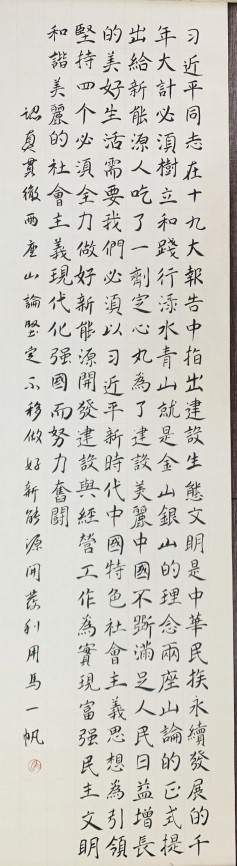 习近平同志在十九大報告中指出建設生態文明是中華民族永續發展的千
年大計必須樹立和踐行渌水青山就是金山銀山的理念兩座山論的正式提
出給新能源人吃了一劑定心丸為了建設美麗中國不斷滿足人民日益增長
的美好生活需要我們必須以习近平新時代中國特色社會主義思想為引領
堅持四个必須全力做好新能源開發建設與經營工作為實現富强民主文明
和諧美麗的社會主義現代化强國而努力奮鬭
認真貫徹两座山論堅定不移做好新能源開發利用馬一帆